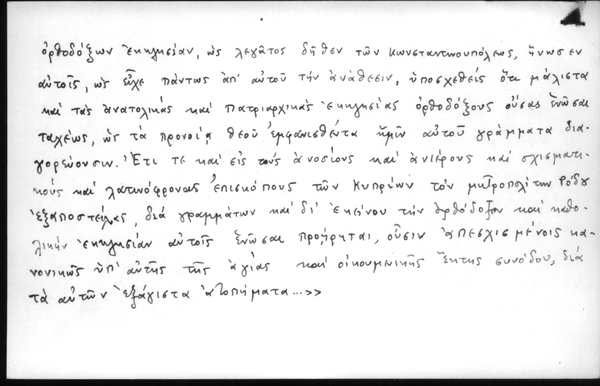 ὀρθοδόξων ἐκκλησίαν, ὡς λεγᾶτος δῆθεν τῶν Κωνσταντινουπόλεως, ἥνωσεν
αὐτοῖς, ὡς εἶχε πάντως ἀπ' αὐτοῦ τὴν ἀνάθεσιν, ὑποσχεθεὶς ὅτι μάλιστα
καὶ τὰς ἀνατολικὰς καὶ πατριαρχικὰς ἐκκλησίας ὀρθοδόξους οὔσας ἑνῶσαι
ταχέως, ὡς τὰ προνοίᾳ θεοῦ ἐμφανισθέντα ἡμῖν αὐτοῦ γράμματα δια-
γορεύουσιν. Ἔτι τε καὶ εἰς τοὺς ἀνοσίους καὶ ἀνιέρους καὶ σχισματι-
κοὺς καὶ λατινόφρονας ἐπισκόπους τῶν Κυπρίων τὸν μητροπολίτην Ῥόδου
ἐξαποστείλας, διὰ γραμμάτων καὶ δι' ἐκείνου τὴν ὀρθόδοξον καὶ καθο-
λικὴν ἐκκλησίαν αὐτοῖς ἑνῶσαι προῄρηται, οὖσιν ἀπεσχισμένοις κα-
νονικῶς ὑπ' αὐτῆς τῆς ἁγίας καὶ οἰκουμενικῆς ἕκτης συνόδου, διὰ
τὰ αὐτῶν ἐξάγιστα ἀτοπήματα...>>